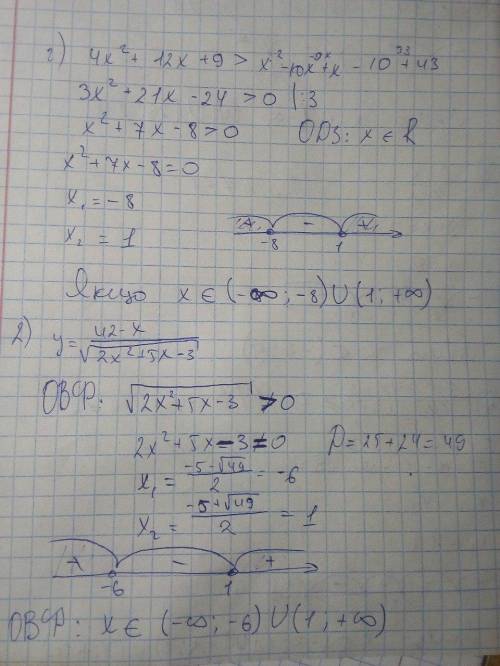 2) 4x² + 12x + 9 > x² - 10x + x - 10 + 43
3x² + 21x - 24 > 0 | :3
x² + 7x - 8 > 0 ОДЗ: x ∈ R
x² + 7x - 8 = 0
x₁ = -8
x₂ = 1
+ - +
-8 1
Якщо x ∈ (-∞; -8) ∪ (1; +∞)
2) y = 42-x / √2x²+5x-3
ОВФ: √2x²+5x-3 > 0
2x² + 5x - 3 = 0 D = 25 + 24 = 49
x₁ = -5-√49 / 2 = -6
x₂ = -5+√49 / 2 = 1
+ - +
-6 1
ОВФ: x ∈ (-∞; -6) ∪ (1; +∞)